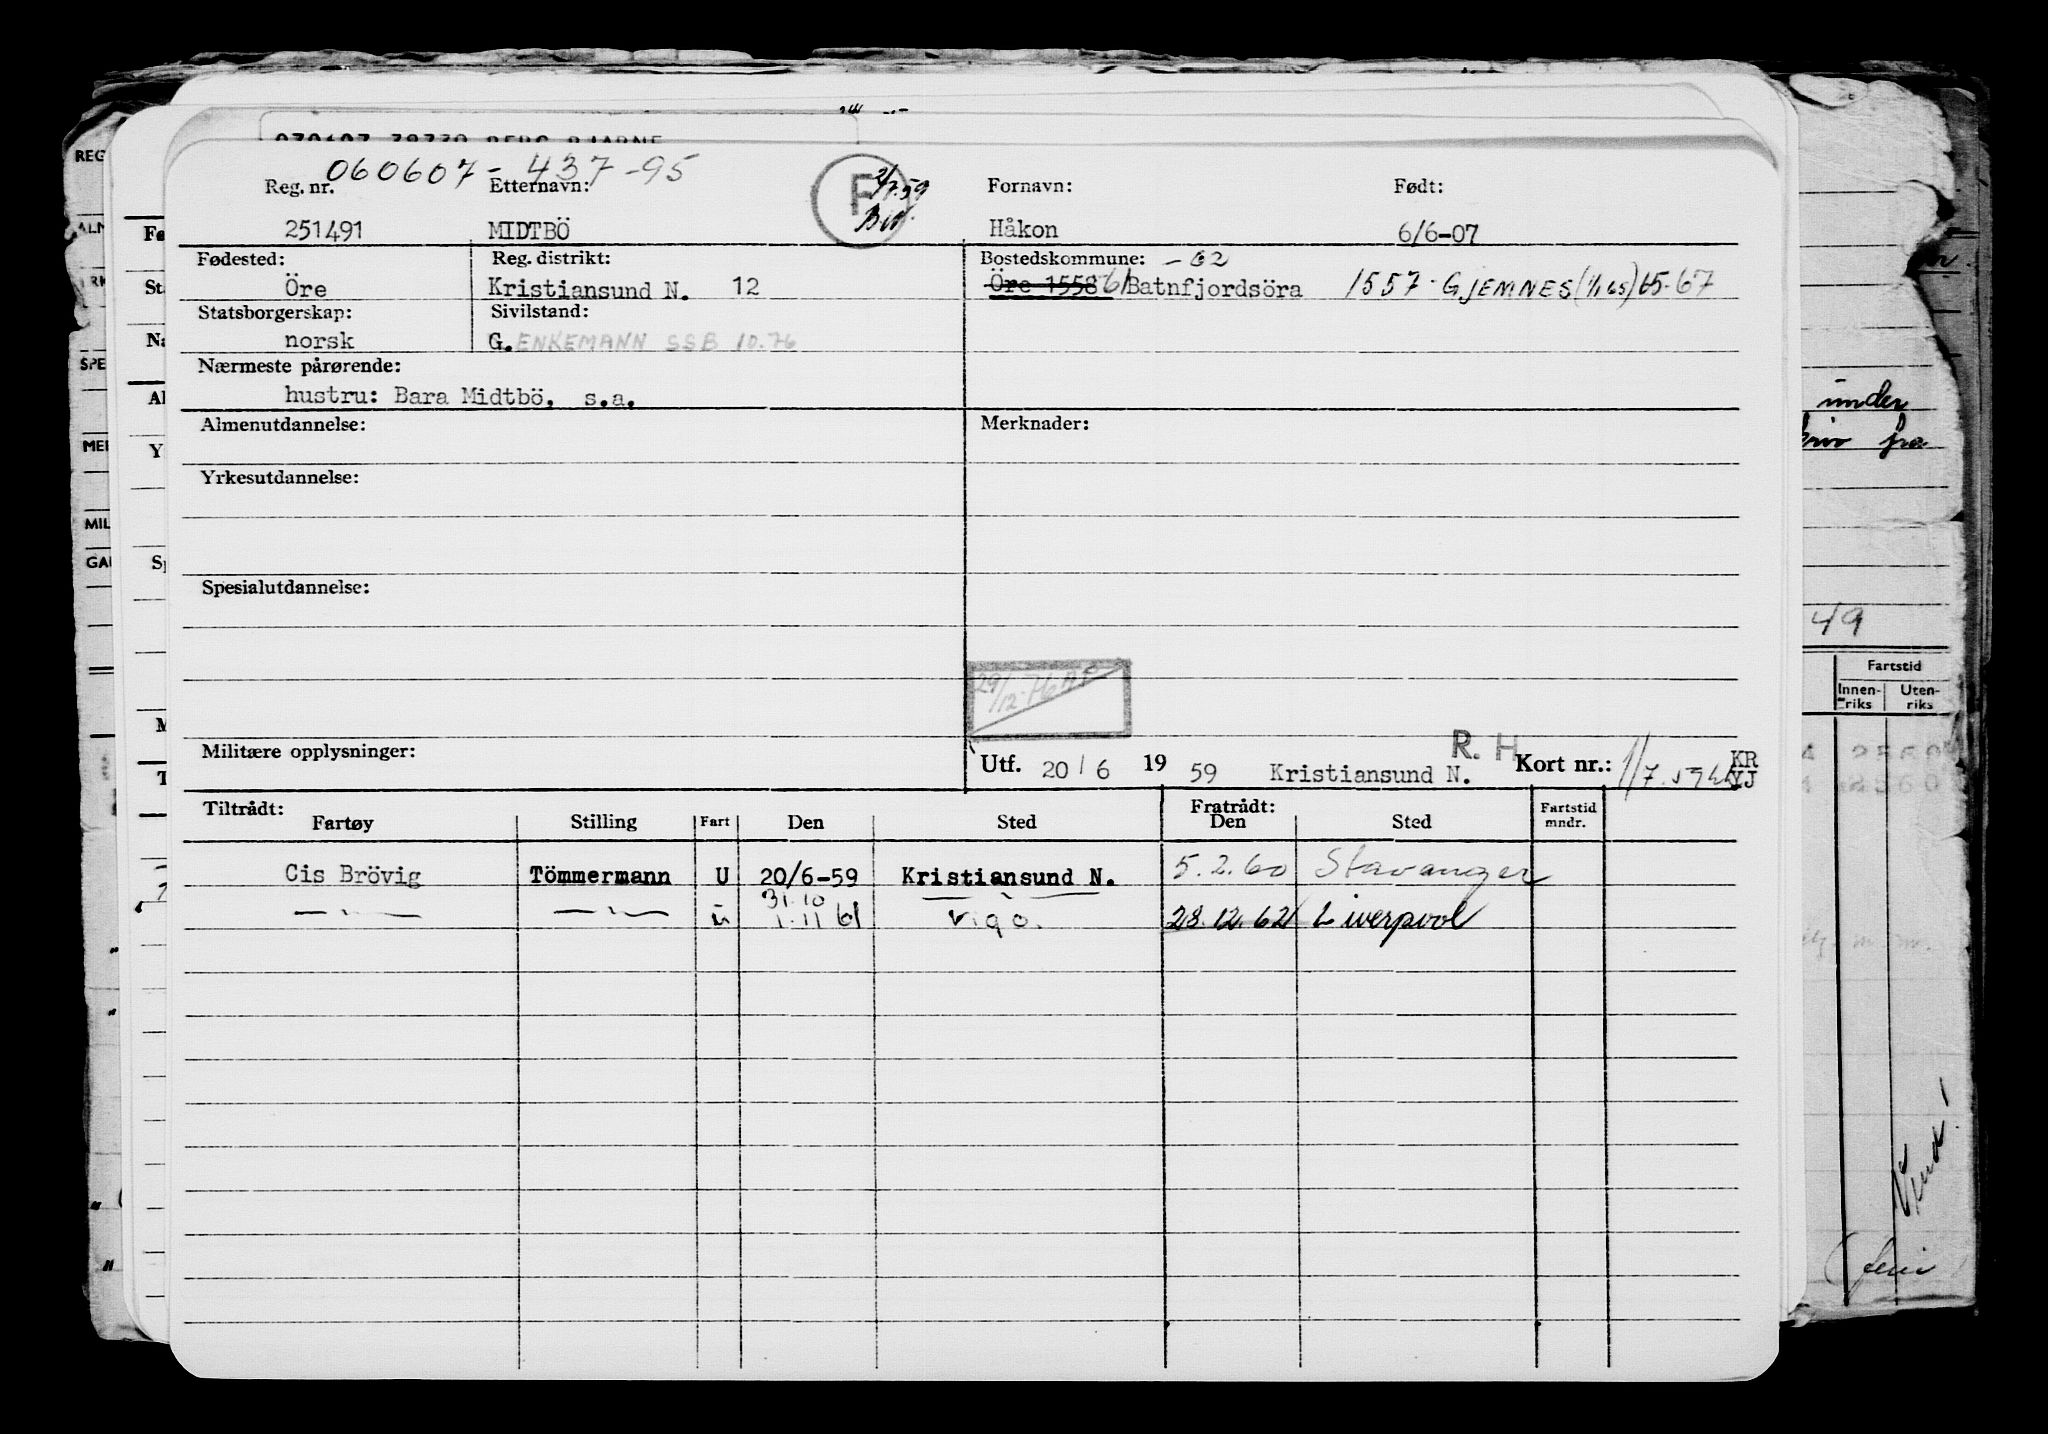 060607-437-95
Reg. nr. Etternavn: Fornavn: Født:
251491 MIDTBÖ F 2/7.59 Håkon 6/6-07
Fødested: Reg. distrikt: Bostedskommune: -62
Öre Kristiansund N. 12 Öre 1558 61 Batnfjordsöra 1557 - GJEMNES (1/1 65) 65-67
Statsborgerskap: Sivilstand:
norsk G. ENKEMANN SSB 10.76
Nærmeste pårørende:
hustru: Bara Midtbö, s.a.
Almenutdannelse: Merknader:
Yrkesutdannelse:
Spesialutdannelse:
29/12-76 AF
Militære opplysninger: Utf. 20/6 19 59 Kristiansund N. R. H Kort nr.: KR
YJ
Tiltrådt: Fratrådt: Fartstid
Fartøy Stilling Fart Den Sted Den Sted mndr.
Cis Brövig Tömmermann U 20/6-59 Kristiansund N. 5.2.60 Stavanger
31.10
— " — — " — u 1.11 61 Vigo. 28.12.62 Liverpool
REG
ALM
SPE
MER
MIL
GAU
Fø
St
Na
Al
Y
Sp
M
T
under
fra
49
Fartstid
Innen- Uten-
riks riks